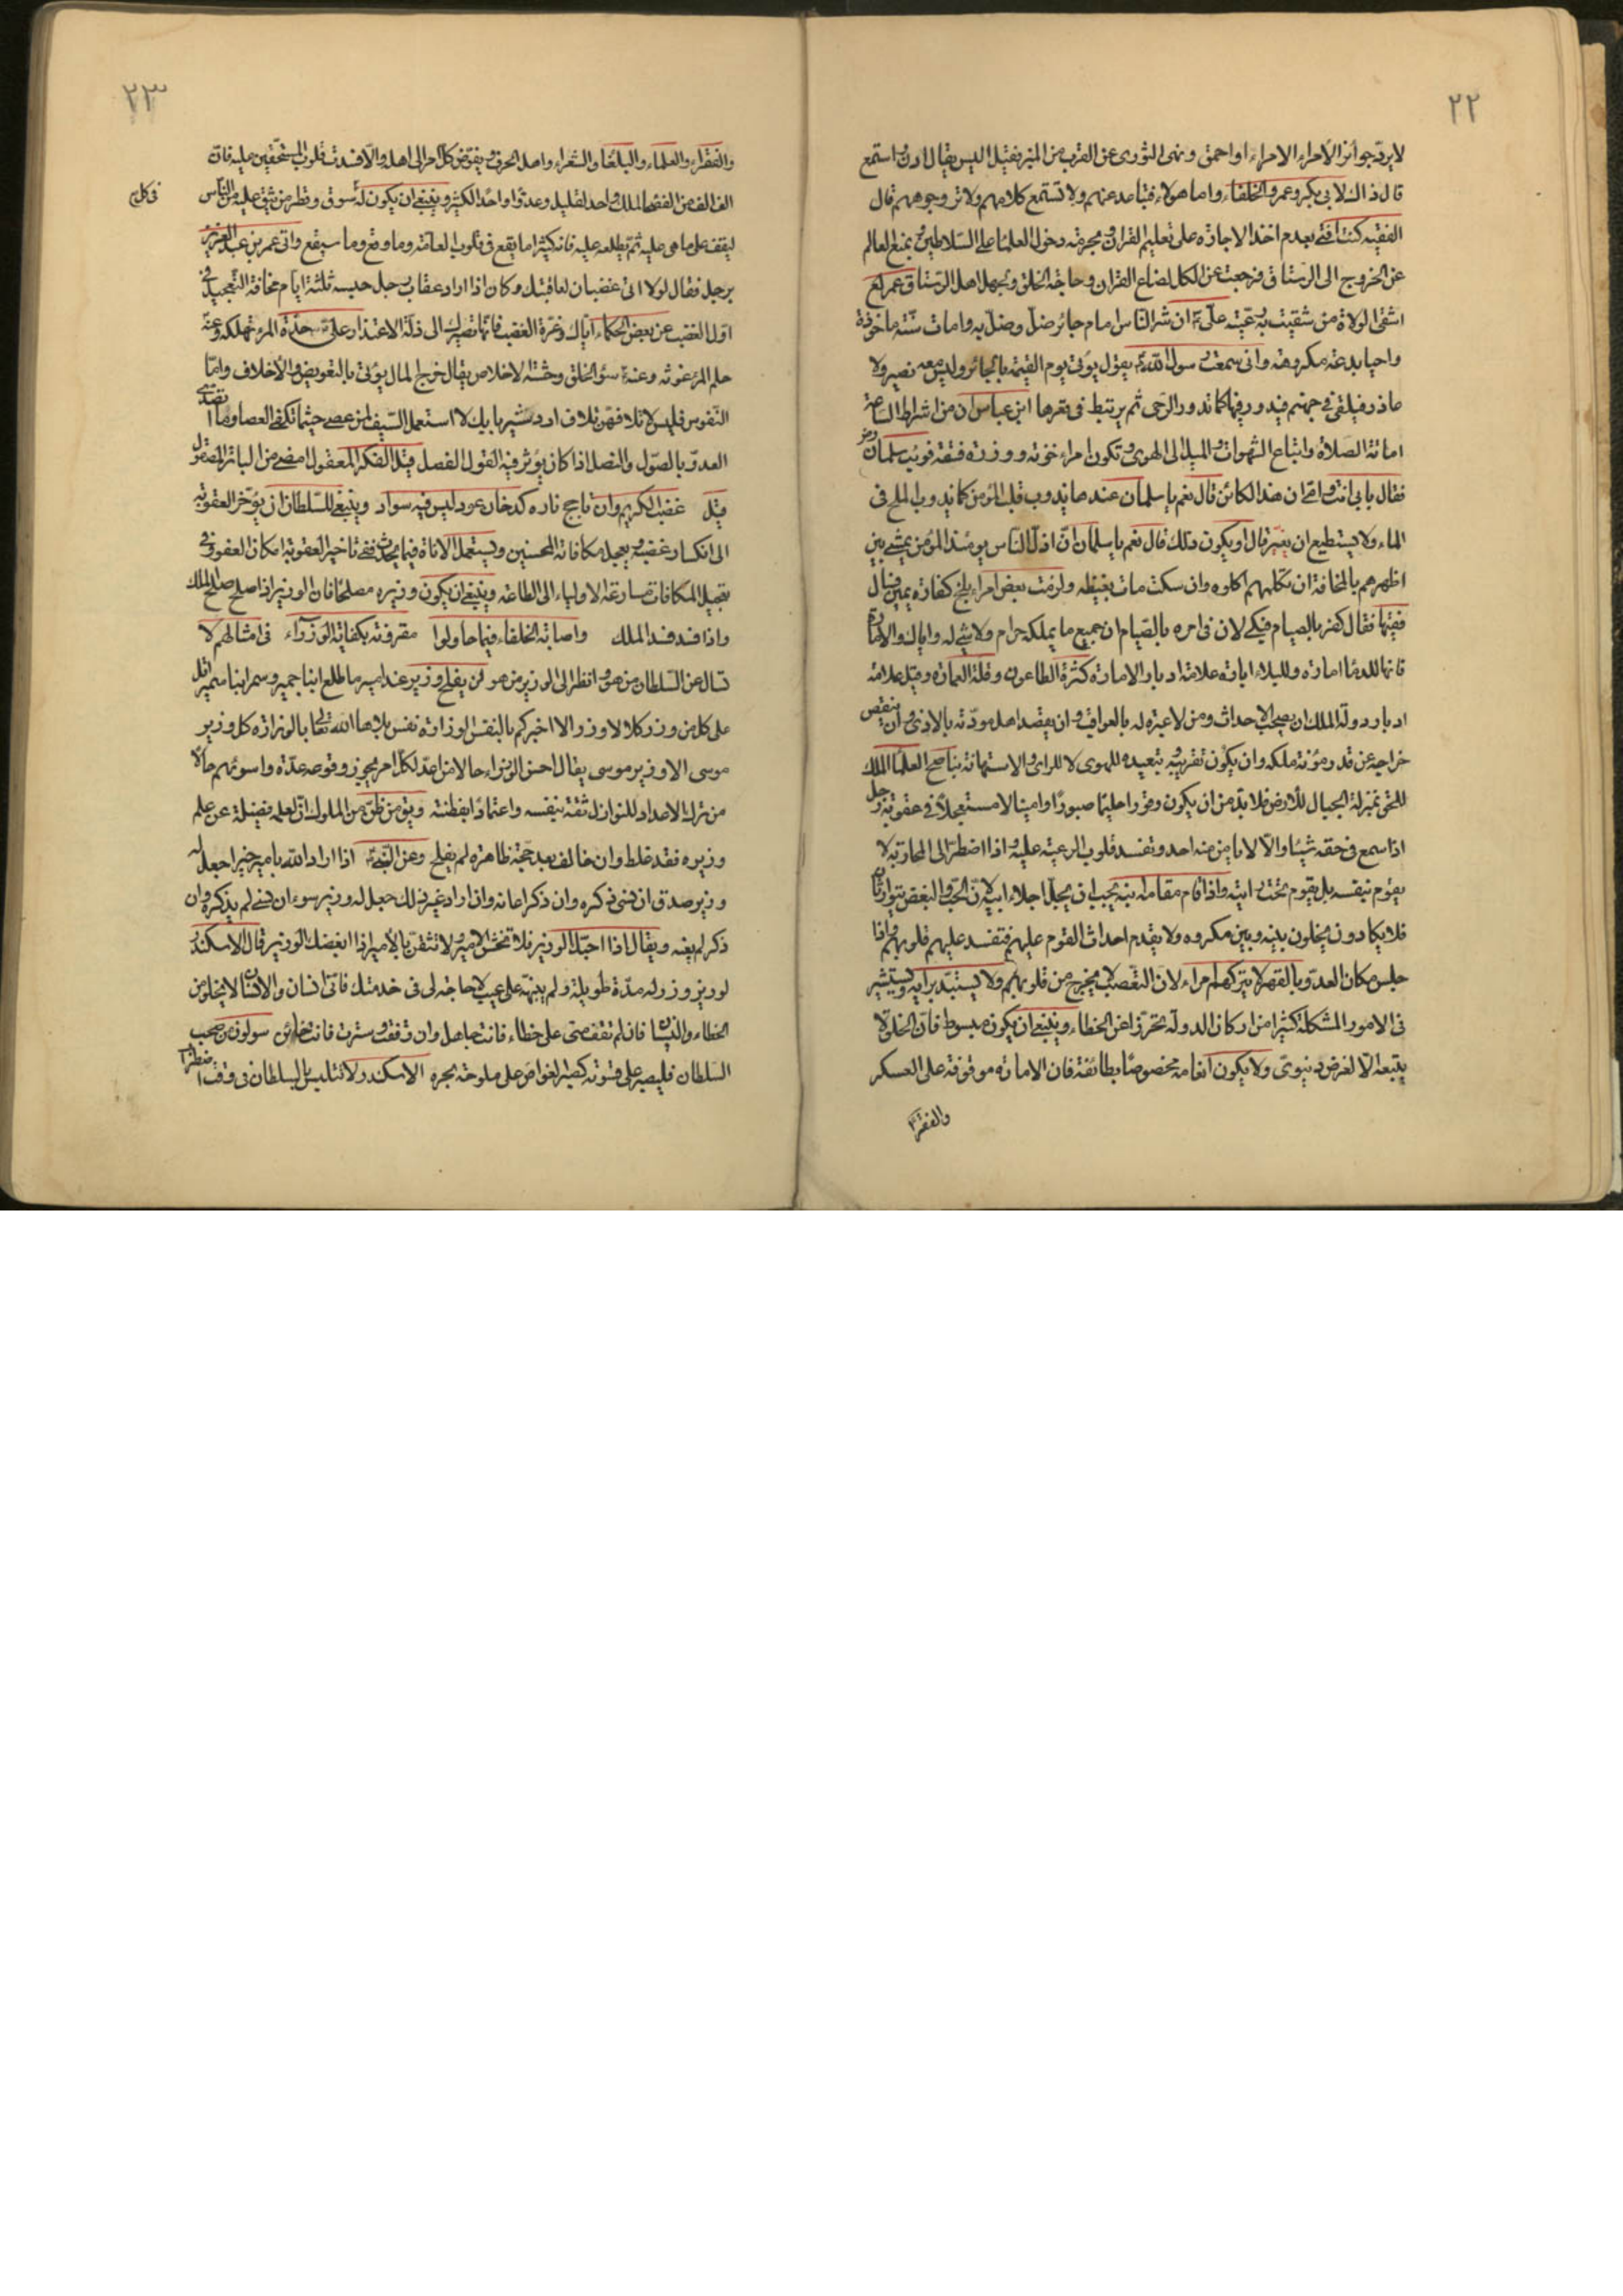 ٢٢
لا يرد جوائز الأمراء الا مراء او احمق ونهى الثورى عن القرب من المنبر فقيل اليس يقال ادن واستمع
قال ذاك لابى بكر وعمر والخلفاء واما هولاء فتباعد عنهم ولا تستمع كلامهم ولا تر وجوههم قال
الفقيه كنت افتى بعدم اخذ الاجازه على تعليم القران ومحرمة دخول العلماء على السلاطين وبمنع العالم
عن الخروج الى الرستاق فرجعت عن الكل لضياع القران وحاجة الخلق وبجهل اهل الرستاق عمر
اشقى الولاة من شقيت به رعيته على ان شر الناس امام جائر ضل وضل به وامات سنة ماخوذة
واحيا بدعة مكروهة وانى سمعت رسول الله يقول يؤتى يوم القيمة بالجائر وليس معه نصير ولا
عاذر فيلقى فى جهنم فيدور فيها كما تدور الرحى ثم يرتبط فى قعرها ابن عباس ان من اشراط الساعة
اماتة الصلاة واتباع الشهوات والميل الى الهوى وتكون امراء خونة ووزرة فسقة فوثب سلمان
فقال بابى انت وامى ان هذا الكائن قال نعم يا سلمان عندها يذوب قلب المؤمن كما يذوب الملح فى
الماء ولا يستطيع ان يغير قال او يكون ذلك قال نعم يا سلمان ان اذل الناس يومئذ المؤمن يمشى بين
اظهرهم بالمخافة ان تكلم هم اكلوه وان سكت مات بغيظه ولزمت بعض امراء بلخ كفارة يمين فسال
فقيها فقال كفر بالصيام فبكى لان فى امره بالصيام ان جميع ما يملكه حرام ولا شئ له واياك والامارة
فانها للدماء امارة وللبلاء ابارة علامة ادبار الامارة كثرة الطاعون وقلة العمارة وقيل علامة
ادبار دولة الملك ان يصحب الاحداث ومن لا عبرة له بالعواقب وان يقصد اهل مودته بالاذى وان ينقص
خراجه عن قدر مؤنة ملكه وان يكون تقريبه وتبعيده للهوى لا للراى والاستهانة بنصائح العلماء الملك
للخلق بمنزلة الجبال للأرض فلا بد من ان يكون وقورا حليما صبورا وامينا لا مستعجلا فى عقوبة رجل
اذا سمع فى حقه شيئا والا لا يامن منه احد وتفسد قلوب الرعية عليه واذا اضطر الى المحاربة لا
يقوم بنفسه بل يقوم تحت رايته واذا قام مقامه ابنه يجب ان يجل اجلاء ابيه لان الحب والبغض يتوارثان
فلا يكادون يخلون بينه وبين مكروه ولا يقدم احداث القوم عليهم فتفسد عليهم قلوبهم واذا
جلس مكان العدو بالقهر لا يتركهم امراء لان التعصب لا يخرج من قلوبهم ولا يستبد برايه ويستشير
فى الامور المشكلة كثيرا من اركان الدولة تحرزا عن الخطاء وينبغى ان يكون مبسوط فان الخلق لا
يتبعه الا لغرض دنيوى ولا يكون انعامه مخصوصا بطائفة فان الامارة موقوفة على العسكر
والفقراء
٢٣
والفقراء والعلماء والبلغاء والشعراء واهل الحرف يفوض كل امر الى اهله والا فسدت قلوب المستحقين عليه فان
الف الف من الفقهاء للملك واحد لقليل وعدوا واحدا لكثير وينبغى ان يكون له سوق ونظر من يثق عليه من الناس
فى كل
ليقف على ما هى عليه ثم يطلعه عليه فانه كثيرا ما يقع فى قلوب العامة وما وقع وما سيقع واتى عمر بن عبد العزيز
برجل فقال لولا انى غضبان لعاقبتك وكان اذا اراد عقاب رجل حبسه ثلثة ايام مخافة التعجيل فى
اول الغضب عن بعض الحكماء اياك وعزة الغضب فانها تصيرك الى ذلة الاعتذار على حدة المرء تهلكه وعن
حلم المرء عونه وعنه سوء الخلق وحشة لا خلاص يقال خرج المال يؤتى بالتعويض والأخلاف واما
النفوس فليس لا تلافهن تلاف اردشير بابك لا استعمل السيف لمن عصى حيثما تكفى العصا وما تصدى
العدو بالصول والنصل اذا كان يؤثر فيه القول الفصل قيل الفكر المعقول امضى من الباتر المصقول
قيل غضب الكريم وان تاجج ناره كدخان عود ليس فيه سواد وينبغى للسلطان ان يؤخر العقوبة
الى انكسار غضبه ويعجل مكافاة المحسنين ويستعمل الاناة فيما يحدث ففى تاخير العقوبة امكان العفو وفى
تعجيل المكافات مسارعة الاولياء الى الطاعة وينبغى ان يكون وزيره مصلحا فان الوزير اذا صلح صلح الملك
واذا فسد فسد الملك واصابة الخلفاء فيما حاولوا مقرونة بكفاية الوزراء فى امثالهم لا
تسال عن السلطان من هو وانظر الى الوزير من هو لن يفلح وزير عند امير ما طلع ابنا جمير وسمر ابنا سمير قل
على كل من وزر كلا لا وزر والا اخبركم بالنفس الوزارة نفس بلاها الله تعالى بالوزارة كل وزير
موسى الا وزير موسى يقال احسن الوزراء حالا من اعد لكل امر يجوز وقوعه عدة واسوئهم حالا
من ترك الاعداد للنوازل ثقة بنفسه واعتمادا بفطنته ويق من ظن من الملوك ان لعلمه فضيلة عن علم
وزيره فقد غلط وان خالفه بعد حجة ظاهرة لم يفلح وعن النبى اذا اراد الله بامير خيرا جعل له
وزير صدق ان نسى ذكره وان ذكر اعانه واذا اراد غير ذلك جعل له وزير سوء ان نسى لم يذكره وان
ذكر لم يعنه ويقال اذا احبك الوزير فلا تخش الامير ولا تثقن بالأمير اذا ابغضك الوزير قال الاسكندر
لوزير وزر له مدة طويلة ولم ينبهه على عيب لا حاجة لى فى خدمتك فانى انسان والانسان لا يخلو من
الخطاء والنسيان فان لم تقف منى على خطاء فانت جاهل وان وقفت وسترت فانت خائن سولون من صحب
السلطان فليصبر على قسوته كصبر الغواص على ملوحة بحره الاسكندر لا تتلبس بالسلطان فى وقت اضطراب